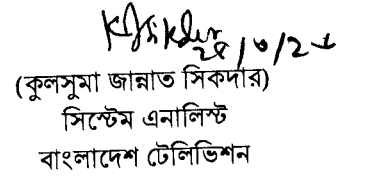 (কুলসুমা জান্নাত সিকদার)
সিস্টেম এনালিস্ট
বাংলাদেশ টেলিভিশন